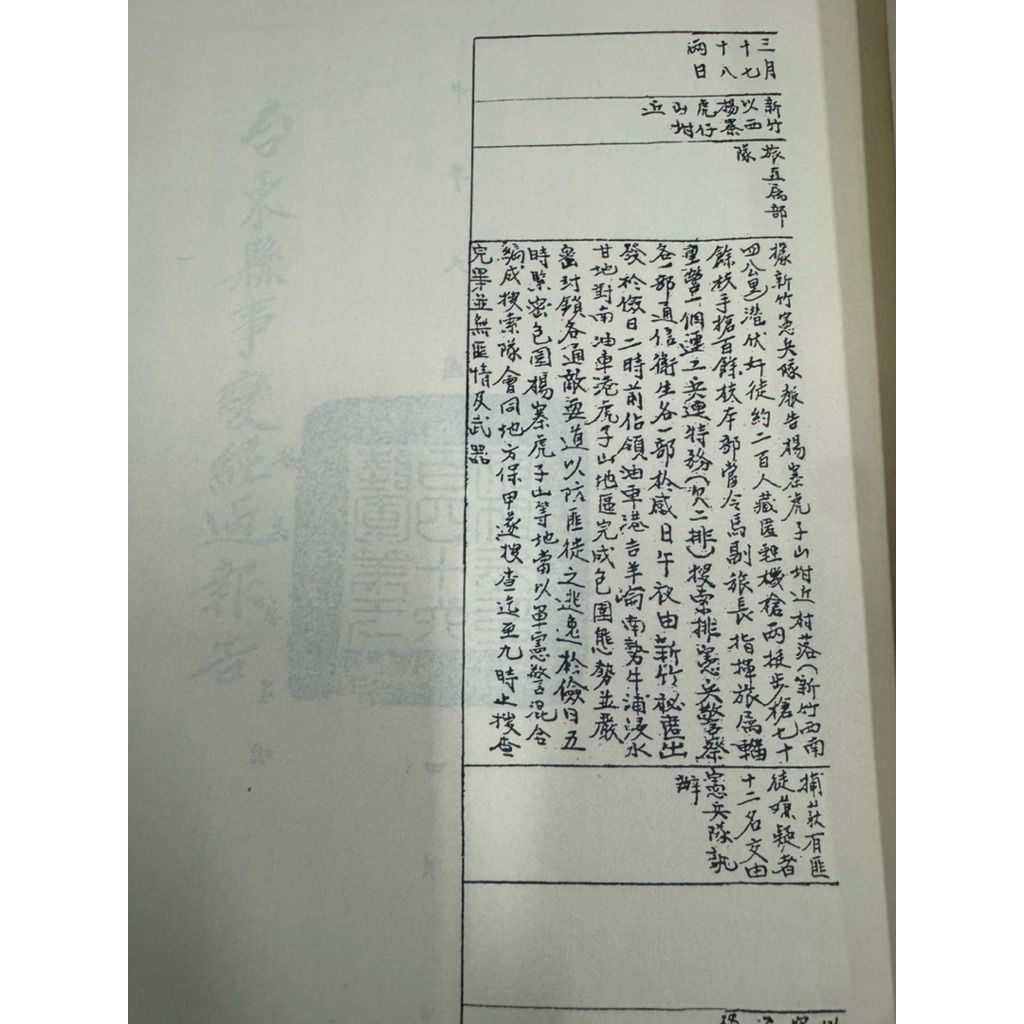 三月
十七
十八
兩日
新竹
以西
楊寮
虎仔
山坿
近
旅直屬部
隊
據新竹憲兵隊報告楊寮虎子山坿近村落(新竹西南
四公里)潛伏奸徒約二百人藏匿輕機槍兩挺步槍七十
餘枝手槍百餘枝本部當令馬副旅長指揮旅屬輜
重營一個連工兵連特務(欠二排)搜索排憲兵警察
各一部通信衛生各一部於感日午夜由新竹秘密出
發於儉日二時前佔領油車港吉羊崙南勢牛浦浸水
甘地對南油車港虎子山地區完成包圍態勢並嚴
密封鎖各通敵要道以防匪徒之逃逸於儉日五
時緊密包圍楊寮虎子山等地當以軍憲警混合
編成搜索隊會同地方保甲逐搜查迄至九時止搜查
完畢並無匪情及武器
捕获有匪
徒嫌疑者
十二名交由
憲兵隊訊
辦
台東縣事變經過報告